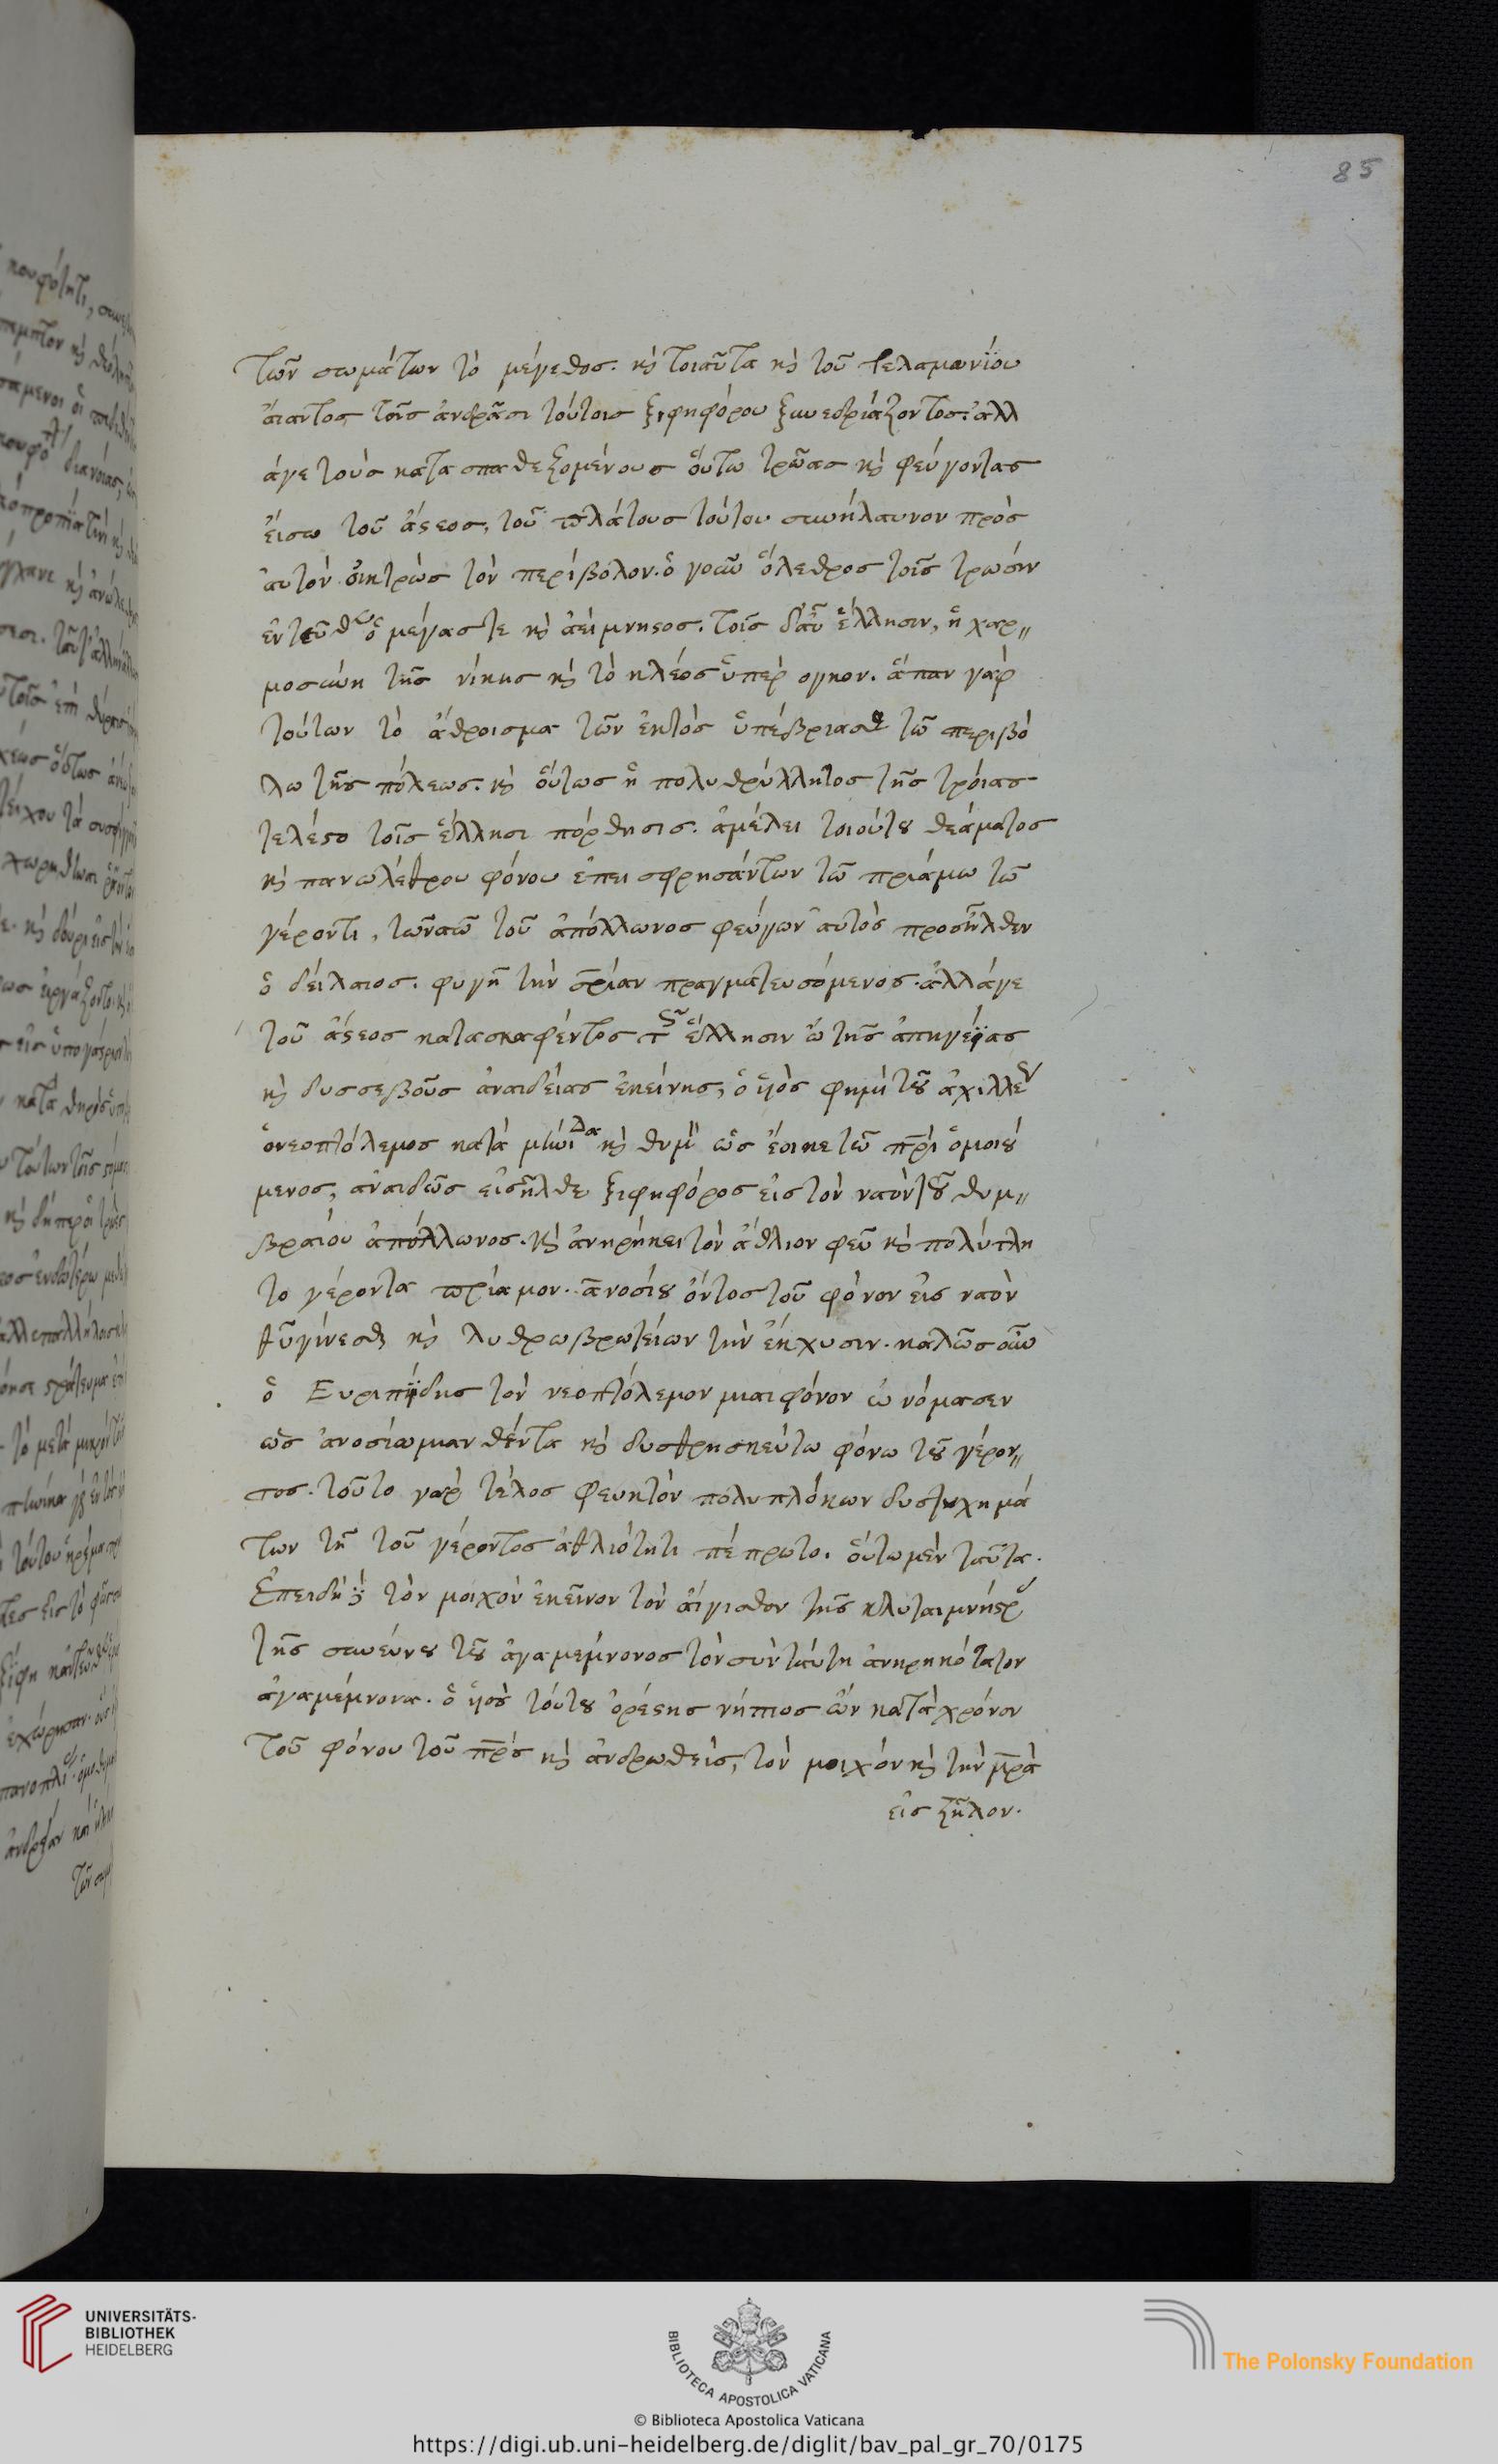 85
τῶν σωμάτων τὸ μέγεθος. κ τοιαῦτα κ τοῦ τελαμωνίου
ἄιαντος τοῖς ἀνδράσι τούτοις ξιφηφόρου ξυνεδριάζοντος. ἀλλ
άγε τοὺς κατασπαθιζομένους ὅυτω τρῶας κ φεύγοντας
ἐίσω τοῦ ἄστεος, τοῦ πλάτους τούτου συνήλαυνον πρὸς
ἀυτὸν οἰκτρῶς τὸν περίβολον. ὁ γοῦν ὄλεθρος τοῖς τρωσὶν
ἐντεῦθεν ὁ μέγας τε κ ἀείμνηστος. τοῖς δ' αὖ ἕλλησιν, ἡ χαρ〃
μοσύνη τῆς νίκης κ τὸ κλέος ὑπὲρ ογκον. ἅπαν γὰρ
τούτων τὸ άθροισμα τῶν ἐκτὸς τῶ περιβό
λω τῆς πόλεως. κ ὅυτως ἡ πολυθρύλλητος τῆς τρόιας
τελέστο τοῖς ἕλλησι πόρθησις. ἀμέλει τοιούτου θεάματος
κ πανωλέθρου φόνου ἐπεισφρησάντων τῶ πριάμω τῶ
γέροντι, τῶ ναῶ τοῦ ἀπόλλωνος φεύγων ἀυτὸς προσῆλθεν
ὁ δείλαιος. φυγῆ τὴν σρίαν πραγματευσόμενος. ἀλλάγε
τοῦ άστεος κατασκαφέντος τοῖς ἕλλησιν ὢ τῆς ἀπηνείας
κ δυσσεβοῦς ἀναιδείας ἐκείνης, ὁ ὑιὸς φημὶ τοῦ ἀχιλλέ
ὁ νεοπτόλεμος κατὰ κ θυμὸν ὡς έοικε τῶ πρι ὁμοιού
μενος, ἀναιδῶς εἰσῆλθε ξιφηφόρος εἰς τὸν ναὸν τοῦ θυμ〃
βραίου ἀπόλλωνος. κ ἀνηρήκει τὸν άθλιον φεῦ κ πολύτλη
το γέροντα πρίαμον. ἀνοσίου όντος τοῦ φόνον εἰς ναὸν
θῦ γίνεσθαι κ λύθρω βροτείων τὴν έκχυσιν. καλῶς οὖν
ὁ Ευριπίδης τὸν νεοπτόλεμον μιαιφόνον ὠνόμασεν
ὡς ἀνοσίω μιανθέντα κ δυσθρησκεύτω φόνω τοῦ γέρον〃
τος. τοῦτο γὰρ τέλος φευκτὸν πολυπλόκων δυστυχημά
των τῆ τοῦ γέροντος ἀθλιότητι πέπρωτο. ὅυτω μὲν ταῦτα.
Ἐπειδὴ δὲ τὸν μοιχὸν ἐκεῖνον τὸν άιγισθον τῆς κλυταιμνήστρ
τῆς συνεύνου τοῦ ἀγαμέμνονος τὸν σὺν ταύτη ἀνηρηκότα τον
ἀγαμέμνονα. ὁ ὑιὸς τούτου ὀρέστης νήπιος ὢν κατὰ χρόνον
τοῦ φόνου τοῦ πρς κ ἀνδρωθεὶς, τὸν μοιχόν κ τὴν μρα
εἰς ξῆλον.
UNIVERSITÄTS-
BIBLIOTHEK
HEIDELBERG
BIBLIOTECA APOSTOLICA VATICANA
The Polonsky Foundation
© Biblioteca Apostolica Vaticana
https://digi.ub.uni-heidelberg.de/diglit/bav_pal_gr_70/0175